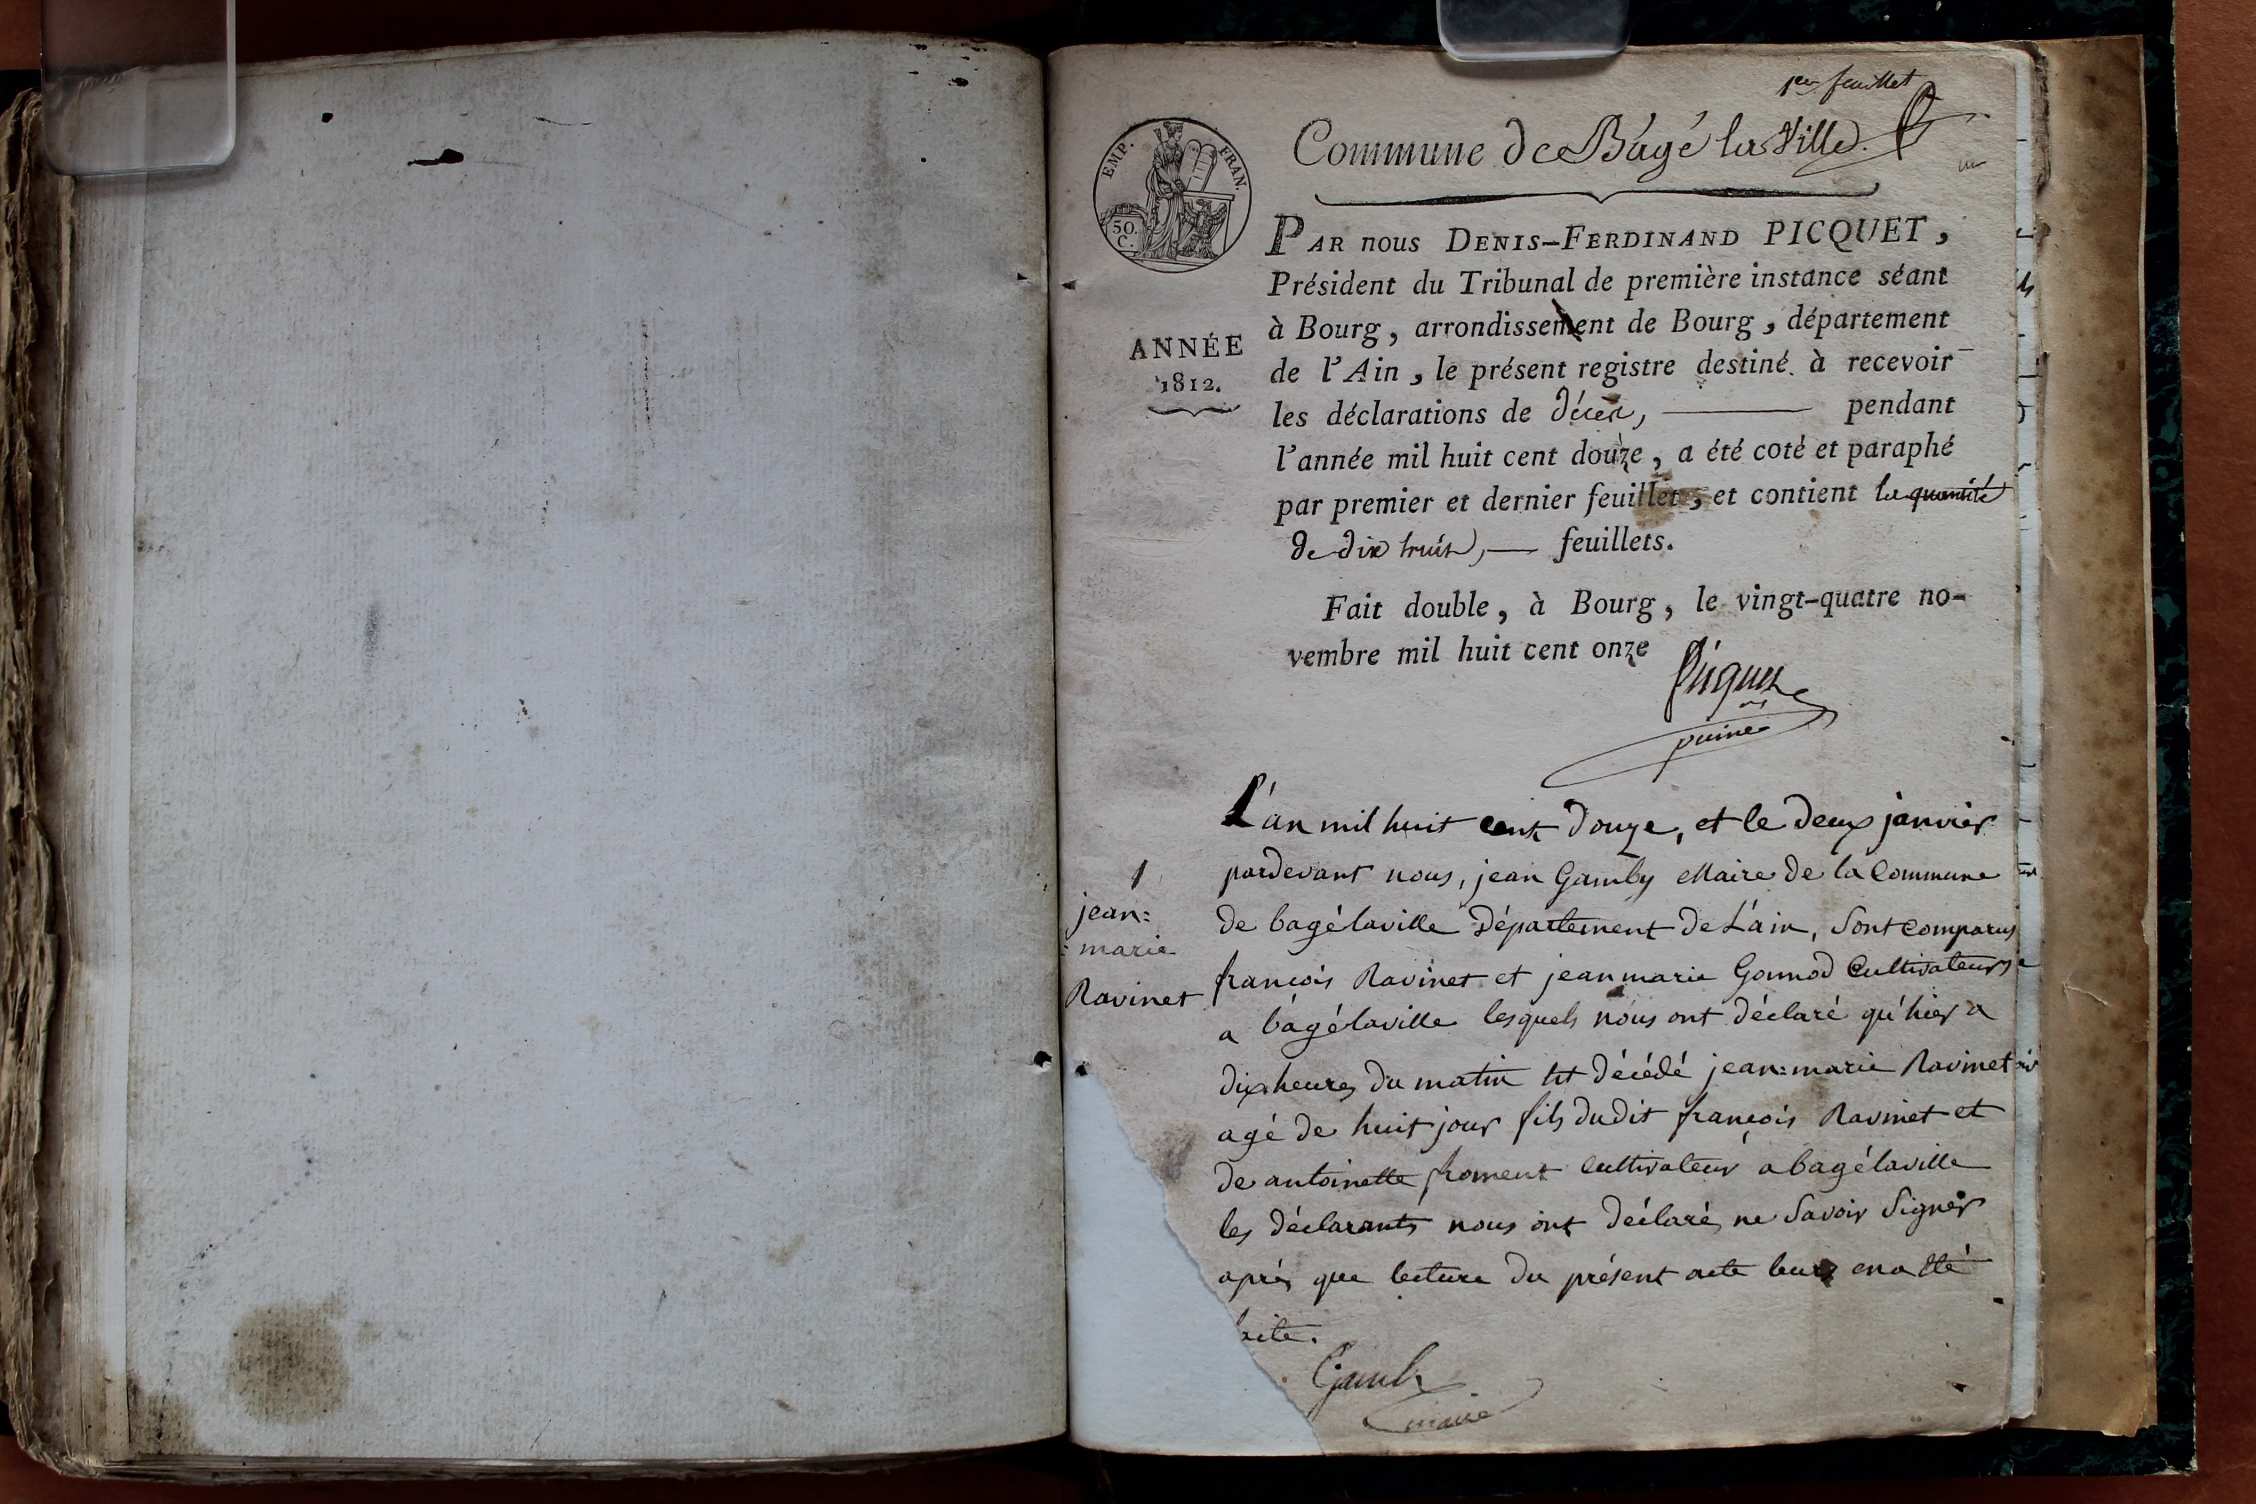 1er feuillet
EMP. FRAN.
50.
C.
Commune de Bâgé la Ville.
ANNÉE
1812.
PAR nous DENIS-FERDINAND PICQUET,
Président du Tribunal de première instance séant
à Bourg, arrondissement de Bourg, département
de l'Ain, le présent registre destiné à recevoir
les déclarations de décès, pendant
l'année mil huit cent douze, a été coté et paraphé
par premier et dernier feuillet, et contient la quantité
de dix huit, feuillets.
Fait double, à Bourg, le vingt-quatre no-
vembre mil huit cent onze
Picquet
1
jean=
=marie
Ravinet
L'an mil huit cent douze, et le deux janvier
pardevant nous, jean Gamby Maire de la Commune
de bagélaville Département de L'ain, sont comparus
françois Ravinet et jean marie Gonnod Cultivateurs
a bagélaville lesquels nous ont déclaré qu'hier a
dix heures du matin est décédé jean=marie Ravinet
agé de huit jour fils dudit françois Ravinet et
de antoinette froment cultivateur a bagélaville
les déclarants nous ont déclaré ne savoir signer
après que lecture du présent acte leur en a été
faite.
Gamby
maire